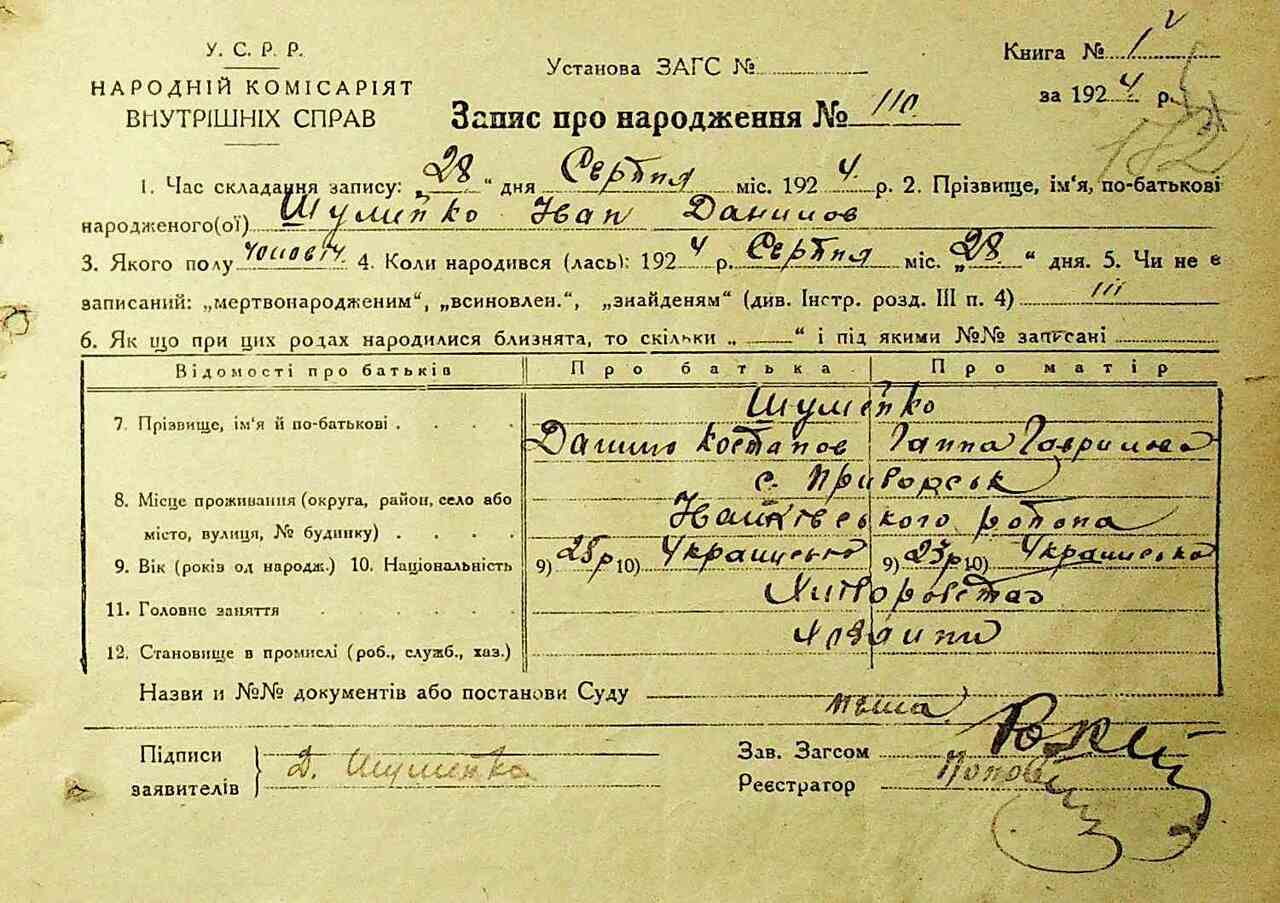 У. С. Р. Р.
НАРОДНІЙ КОМІСАРІЯТ
ВНУТРІШНІХ СПРАВ
Установа ЗАГС №
Книга № 1
за 1924 р.
182
Запис про народження № 110
1. Час складання запису: „28“ дня Серпня міс. 1924. р. 2. Прізвище, ім'я, по-батькові
народженого(ої) Шумейко Іван Данилов
3. Якого полу 4. Коли народився (лась): 1924 р. Серпня міс. „28“ дня. 5. Чи не є
записаний: „мертвонародженим“, „всиновлен.“, „знайденям“ (див. Інстр. розд. III п. 4)
6. Як що при цих родах народилися близнята, то скільки „ “ і під якими №№ записані
Відомості про батьків Про батька Про матір
7. Прізвище, ім'я й по-батькові . . . . Шумейко
Данило Гавринова
8. Місце проживання (округа, район, село або
місто, вулиця, № будинку) . . . .
с.
9. Вік (років од народж.) 10. Національність 9) 28р 10) Українсько 9) 23р 10) Українська
11. Головне заняття . . . .
12. Становище в промислі (роб., служб., хаз.)
Назви и №№ документів або постанови Суду
Підписи
заявителів
Д. Шумейко
Зав. Загсом
Реєстратор